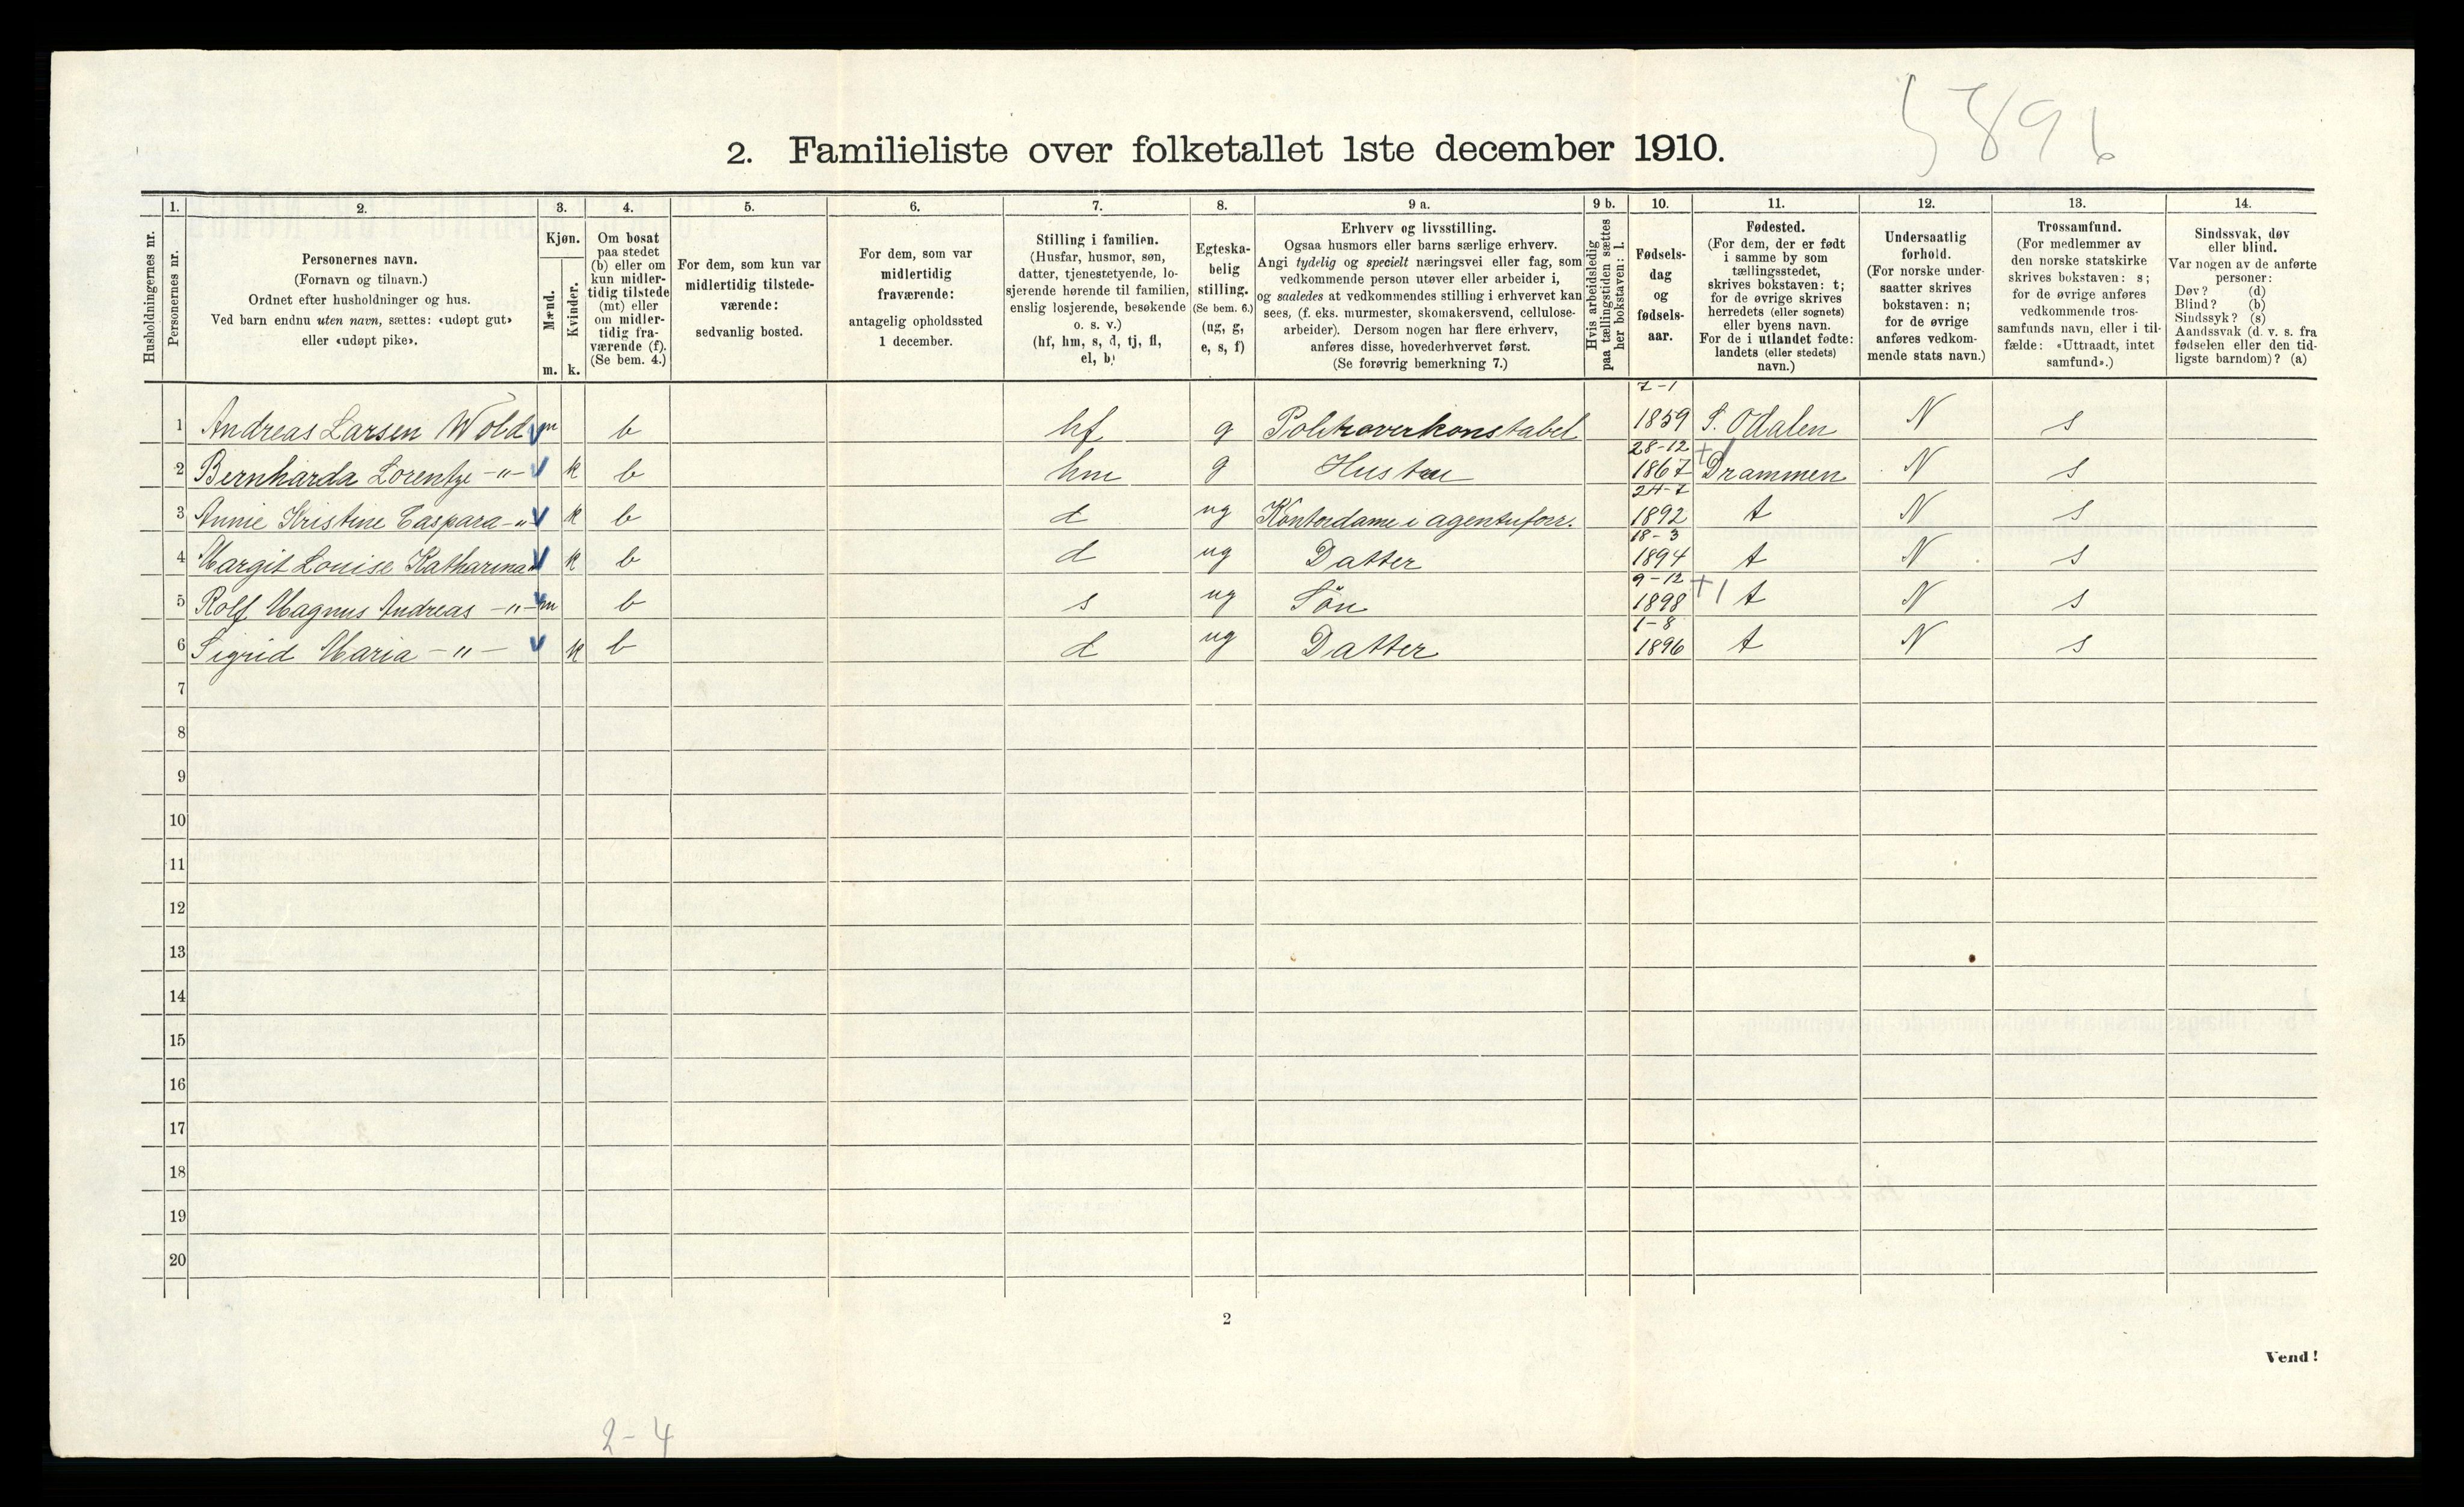 5896
2. Familieliste over folketallet 1ste december 1910.
1. 2. 3. 4. 5. 6. 7. 8. 9 a. 9 b. 10. 11. 12. 13. 14.
Husholdningernes nr.
Personernes nr.
Personernes navn.
(Fornavn og tilnavn.)
Ordnet efter husholdninger og hus.
Ved barn endnu uten navn, sættes: «udøpt gut»
eller «udøpt pike».
Kjøn.
Mænd.
Kvinder.
m. k.
Om bosat
paa stedet
(b) eller om
kun midler-
tidig tilstede
(mt) eller
om midler-
tidig fra-
værende (f).
(Se bem. 4.)
For dem, som kun var
midlertidig tilstede-
værende:
sedvanlig bosted.
For dem, som var
midlertidig
fraværende:
antagelig opholdssted
1 december.
Stilling i familien.
(Husfar, husmor, søn,
datter, tjenestetyende, lo-
sjerende hørende til familien,
enslig losjerende, besøkende
o. s. v.)
(hf, hm, s, d, tj, fl,
el, b)
Egteska-
belig
stilling.
(Se bem. 6.)
(ug, g,
e, s, f)
Erhverv og livsstilling.
Ogsaa husmors eller barns særlige erhverv.
Angi tydelig og specielt næringsvei eller fag, som
vedkommende person utøver eller arbeider i,
og saaledes at vedkommendes stilling i erhvervet kan
sees, (f. eks. murmester, skomakersvend, cellulose-
arbeider). Dersom nogen har flere erhverv,
anføres disse, hovederhvervet først.
(Se forøvrig bemerkning 7.)
Hvis arbeidsledig
paa tællingstiden sættes
her bokstaven: l.
Fødsels-
dag
og
fødsels-
aar.
Fødested.
(For dem, der er født
i samme by som
tællingsstedet,
skrives bokstaven: t;
for de øvrige skrives
herredets (eller sognets)
eller byens navn.
For de i utlandet fødte:
landets (eller stedets)
navn.)
Undersaatlig
forhold.
(For norske under-
saatter skrives
bokstaven: n;
for de øvrige
anføres vedkom-
mende stats navn.)
Trossamfund.
(For medlemmer av
den norske statskirke
skrives bokstaven: s;
for de øvrige anføres
vedkommende tros-
samfunds navn, eller i til-
fælde: «Uttraadt, intet
samfund».)
Sindssvak, døv
eller blind.
Var nogen av de anførte
personer:
Døv? (d)
Blind? (b)
Sindssyk? (s)
Aandssvak (d. v. s. fra
fødselen eller den tid-
ligste barndom)? (a)
1 Andreas Larsen Wold m b hf g Politioverkonstabel 7-1 1859 S. Odalen N s
2 Bernharda Lorentze -"- k b hm g Hustru 28-12 1867 Drammen N s
3 Annie Kristine Caspara -"- k b d ug Kontordame i agenturforr. 24-7 1892 t N s
4 Margit Louise Katharina " k b d ug Datter 18-3 1894 t N s
5 Rolf Magnus Andreas -"- m b s ug Søn 9-12 1898 t N s
6 Sigrid Maria -"- k b d ug Datter 1-8 1896 t N s
7
8
9
10
11
12
13
14
15
16
17
18
19
20
2
Vend!
2-4